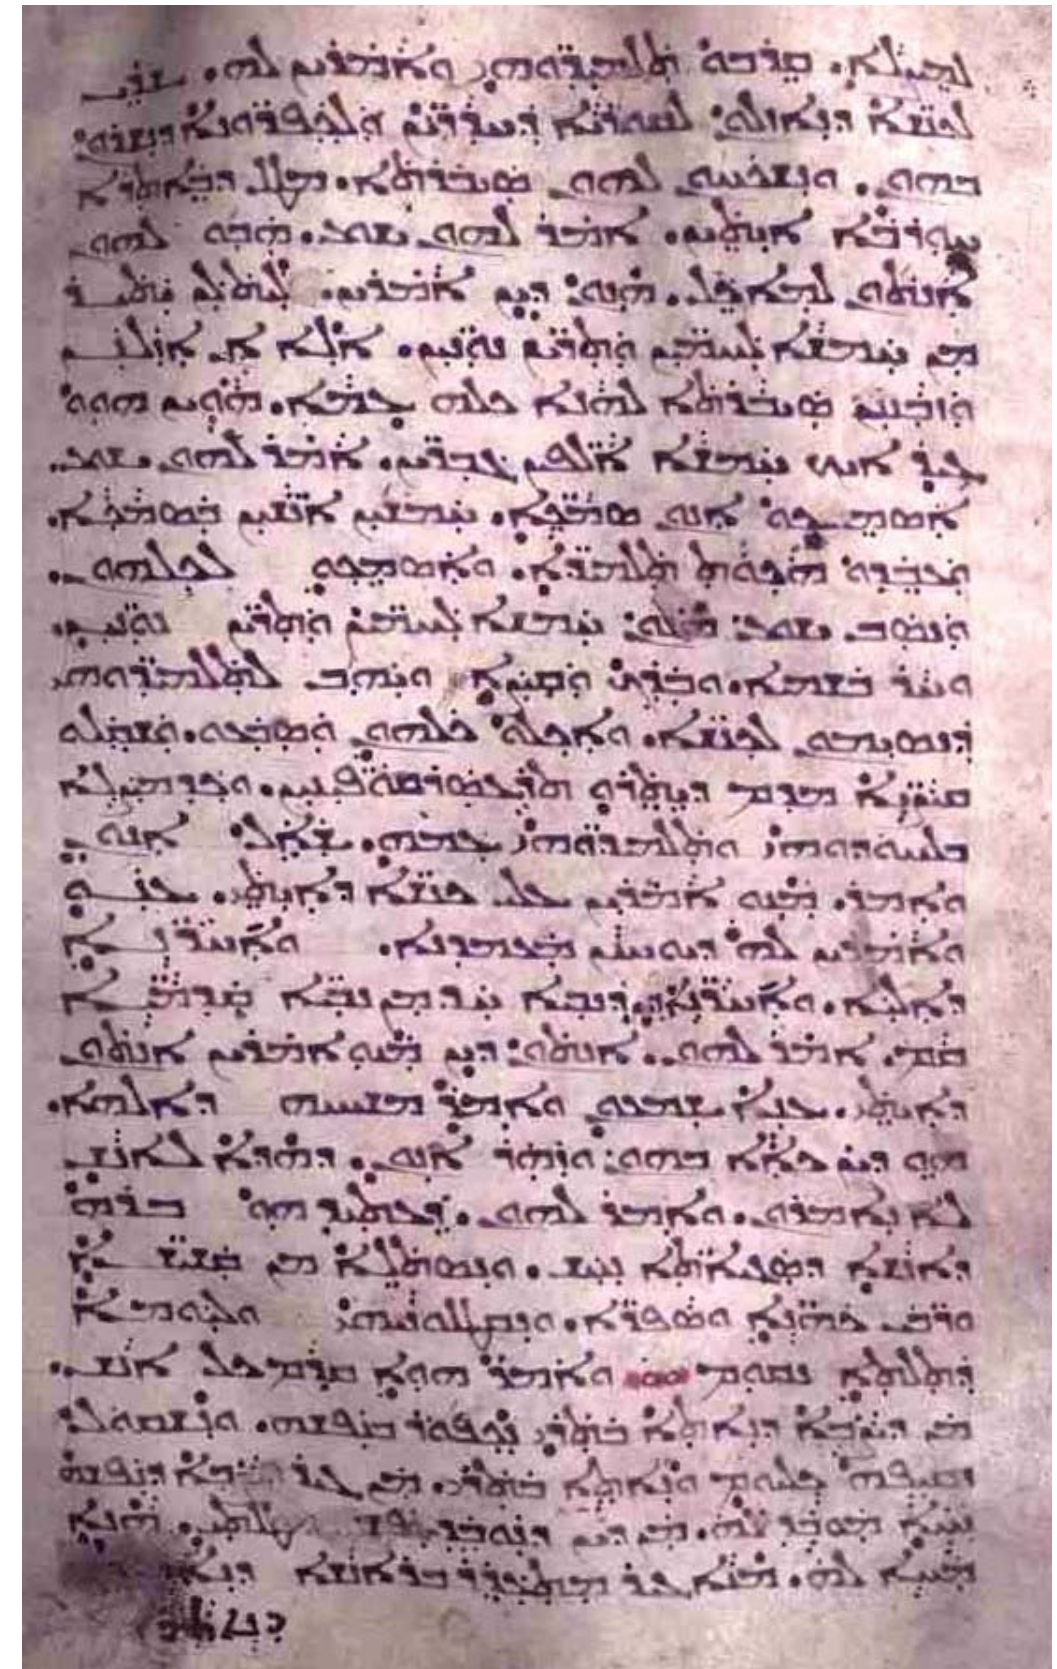 ܠܡܨܠܐ. ܩܪܒܘ ܬܠܡܝܕܘܗܝ ܘܐܡܪܝܢ ܠܗ. ܫܪܝ
ܠܟܢܫܐ ܕܢܐܙܠܘܢ ܠܩܘܪܝܐ ܕܚܕܪܝܢ ܘܠܟܦܪܘܢܐ ܕܢܫܪܘܢ
ܒܗܘܢ. ܘܢܫܟܚܘܢ ܠܗܘܢ ܣܝܒܪܬܐ. ܡܛܠ ܕܒܐܬܪܐ
ܚܘܪܒܐ ܐܝܬܝܢ. ܐܡܪ ܠܗܘܢ ܝܫܘܥ. ܗܒܘ ܠܗܘܢ
ܐܢܬܘܢ ܠܡܐܟܠ. ܗܢܘܢ ܕܝܢ ܐܡܪܝܢ. ܠܝܬ ܠܢ ܝܬܝܪ
ܡܢ ܚܡܫܐ ܠܚܡܝܢ ܘܬܪܝܢ ܢܘܢܝܢ. ܐܠܐ ܐܢ ܐܙܠܢܢ
ܘܙܒܢܢ ܣܝܒܪܬܐ ܠܗܢܐ ܟܠܗ ܥܡܐ. ܗܘܝܢ ܗܘܘ
ܓܝܪ ܐܝܟ ܚܡܫܐ ܐܠܦܝܢ ܓܒܪܝܢ. ܐܡܪ ܠܗܘܢ ܝܫܘܥ.
ܐܣܡܟܘ ܐܢܘܢ ܣܡܟܐ. ܚܡܫܝܢ ܐܢܫܝܢ ܒܣܡܟܐ.
ܘܥܒܕܘ ܗܟܘܬ ܬܠܡܝܕܐ. ܘܐܣܡܟܘ ܠܟܠܗܘܢ.
ܘܢܣܒ ܝܫܘܥ ܗܢܘܢ ܚܡܫܐ ܠܚܡܝܢ ܘܬܪܝܢ ܢܘܢܝܢ.
ܘܚܪ ܒܫܡܝܐ. ܘܒܪܟ ܘܩܨܐ ܘܝܗܒ ܠܬܠܡܝܕܘܗܝ
ܕܢܣܝܡܘܢ ܠܟܢܫܐ. ܘܐܟܠܘ ܟܠܗܘܢ ܘܣܒܥܘ. ܘܫܩܠܘ
ܩܨܝܐ ܡܕܡ ܕܝܬܪܘ ܬܪܥܣܪ ܩܘܦܝܢܝܢ. ܘܟܕ ܡܨܠܐ
ܒܠܚܘܕܘܗܝ ܘܬܠܡܝܕܘܗܝ ܥܡܗ. ܫܐܠ ܐܢܘܢ
ܘܐܡܪ. ܡܢܘ ܐܡܪܝܢ ܥܠܝ ܟܢܫܐ ܕܐܝܬܝ. ܥܢܘ
ܘܐܡܪܝܢ ܠܗ ܕܝܘܚܢܢ ܡܥܡܕܢܐ. ܘܐܚܪܢܐ
ܕܐܠܝܐ. ܘܐܚܪܢܐ ܕܢܒܝܐ ܚܕ ܡܢ ܢܒܝܐ ܩܕܡܝܐ
ܩܡ. ܐܡܪ ܠܗܘܢ. ܐܢܬܘܢ ܕܝܢ ܡܢܘ ܐܡܪܝܢ ܐܢܬܘܢ
ܕܐܝܬܝ. ܥܢܐ ܫܡܥܘܢ ܘܐܡܪ ܡܫܝܚܗ ܕܐܠܗܐ.
ܗܘ ܕܝܢ ܟܐܐ ܒܗܘܢ ܘܙܗܪ ܐܢܘܢ. ܕܗܕܐ ܠܐܢܫ
ܠܐ ܢܐܡܪܘܢ. ܘܐܡܪ ܠܗܘܢ. ܕܥܬܝܕ ܗܘ ܒܪܗ
ܕܐܢܫܐ ܕܣܓܝܐܬܐ ܢܚܫ. ܘܢܣܬܠܐ ܡܢ ܩܫܝܫܐ
ܘܪܒܝ ܟܗܢܐ ܘܣܦܪܐ. ܘܢܩܛܠܘܢܝܗܝ ܘܠܝܘܡܐ
ܕܬܠܬܐ ܢܩܘܡ ܘܐܡܪ ܗܘܐ ܩܕܡ ܟܠ ܐܢܫ.
ܡܢ ܕܨܒܐ ܕܢܐܬܐ ܒܬܪܝ ܢܟܦܘܪ ܒܢܦܫܗ. ܘܢܫܩܘܠ
ܙܩܝܦܗ ܟܠܝܘܡ ܘܢܐܬܐ ܒܬܪܝ. ܡܢ ܓܝܪ ܕܨܒܐ ܕܢܦܫܗ
ܢܚܐ ܡܘܒܕ ܠܗ. ܡܢ ܕܝܢ ܕܢܘܒܕ ܢܦܫܗ ܡܛܠܬܝ. ܗܢܐ
ܡܚܐ ܠܗ. ܡܢܐ ܓܝܪ ܡܬܥܕܪ ܒܪܐܢܫܐ